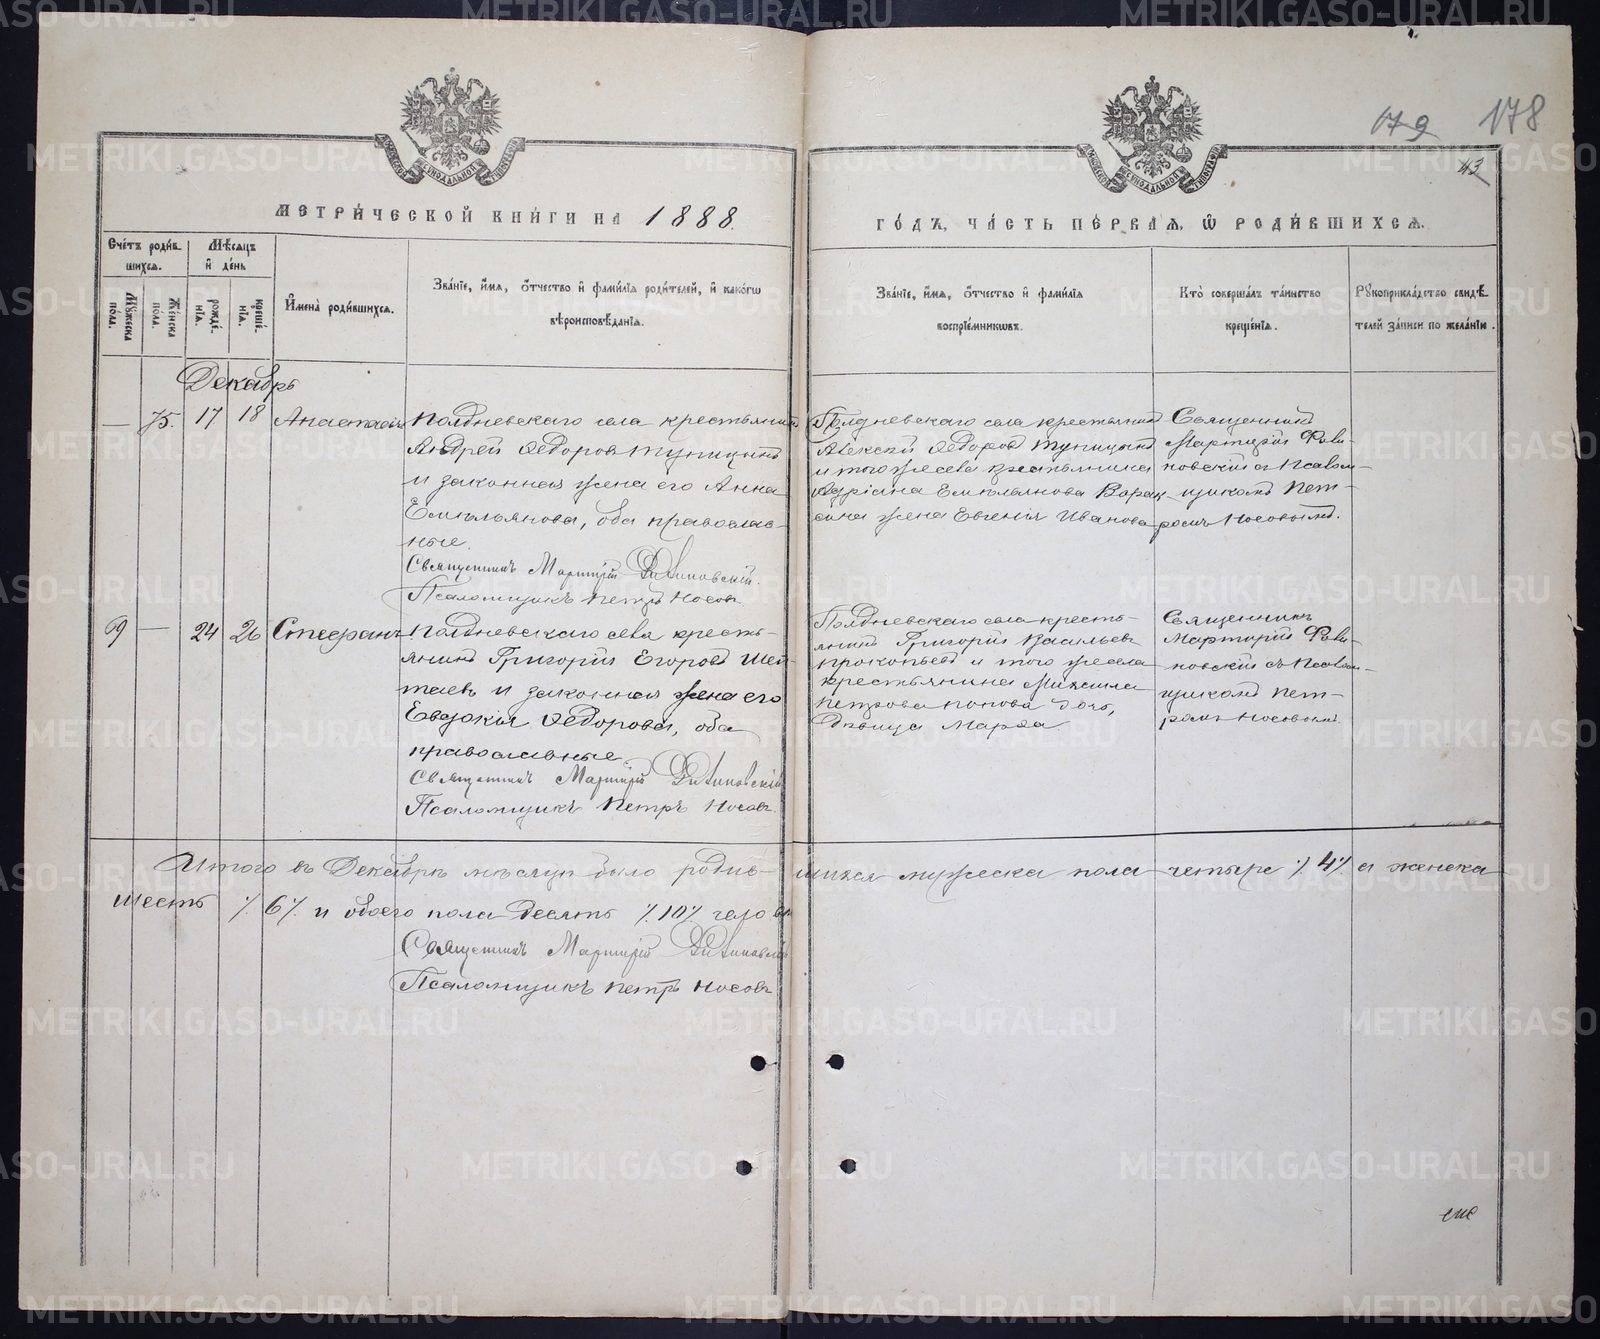 179 178
43
МЕТРИ́ЧЕСКОЙ КНИ́ГИ НА 1888.
ГО́ДЪ, ЧА́СТЬ ПЕ́РВАѦ, Ѡ҆ РОДИ́ВШИХСѦ.
Сче́тъ роди́в-
шихсѧ.
Мѣ́сѧцъ
и҆ де́нь
Мꙋ́жеска
по́ла.
Же́нска
по́ла.
рожде́-
нїѧ.
креще́-
нїѧ.
И҆мена̀ роди́вшихсѧ.
Зва́нїе, и҆́мѧ, ѻ҆́тчество и҆ фами́лїѧ роди́телей, и҆ како́гѡ
вѣроисповѣ́данїѧ.
Зва́нїе, и҆́мѧ, ѻ҆́тчество и҆ фами́лїѧ
воспрїе́мникѡвъ.
Кто̀ соверша́лъ та́инство
креще́нїѧ.
Рꙋкоприкла́дство свидѣ́-
телей за́писи по жела́нїю.
Декабрь
— 75. 17 18 Анастасія
Полдневскаго села крестьянинъ
Андрей Ѳедоровъ Тупицынъ
и законная жена его Анна
Емельянова, оба православ-
ные.
Священникъ Мартирій
Псаломщикъ Петръ Носовъ
Полдневскаго села крестьянинъ
Алексѣй Ѳедоровъ Тупицынъ
и того же села крестьянина
Адріана Емельянова
жена Евгенія Иванова
Священникъ
Мартирій
новскій съ Псалом-
щикомъ Пет-
ромъ Носовымъ.
69 — 24 26 Стефанъ
Полдневскаго села кресть-
янинъ Григорій Егоровъ
и законная жена его
Евдокія Ѳедорова, оба
православные.
Священникъ Мартирій
Псаломщикъ Петръ Носовъ.
Полдневскаго села кресть-
янинъ Григорій Васильевъ
Прокопьевъ и того же села
крестьянина Михаила
Петрова Попова дочь,
Дѣвица Марѳа.
Священникъ
Мартирій
новскій съ Псалом-
щикомъ Пет-
ромъ Носовымъ.
Итого въ Декабрѣ мѣсяцѣ было родив- шихся мужеска пола четыре /4/ а женска
шесть /6/ и обоего пола десять /10/ человѣкъ
Священникъ Мартирій
Псаломщикъ Петръ Носовъ